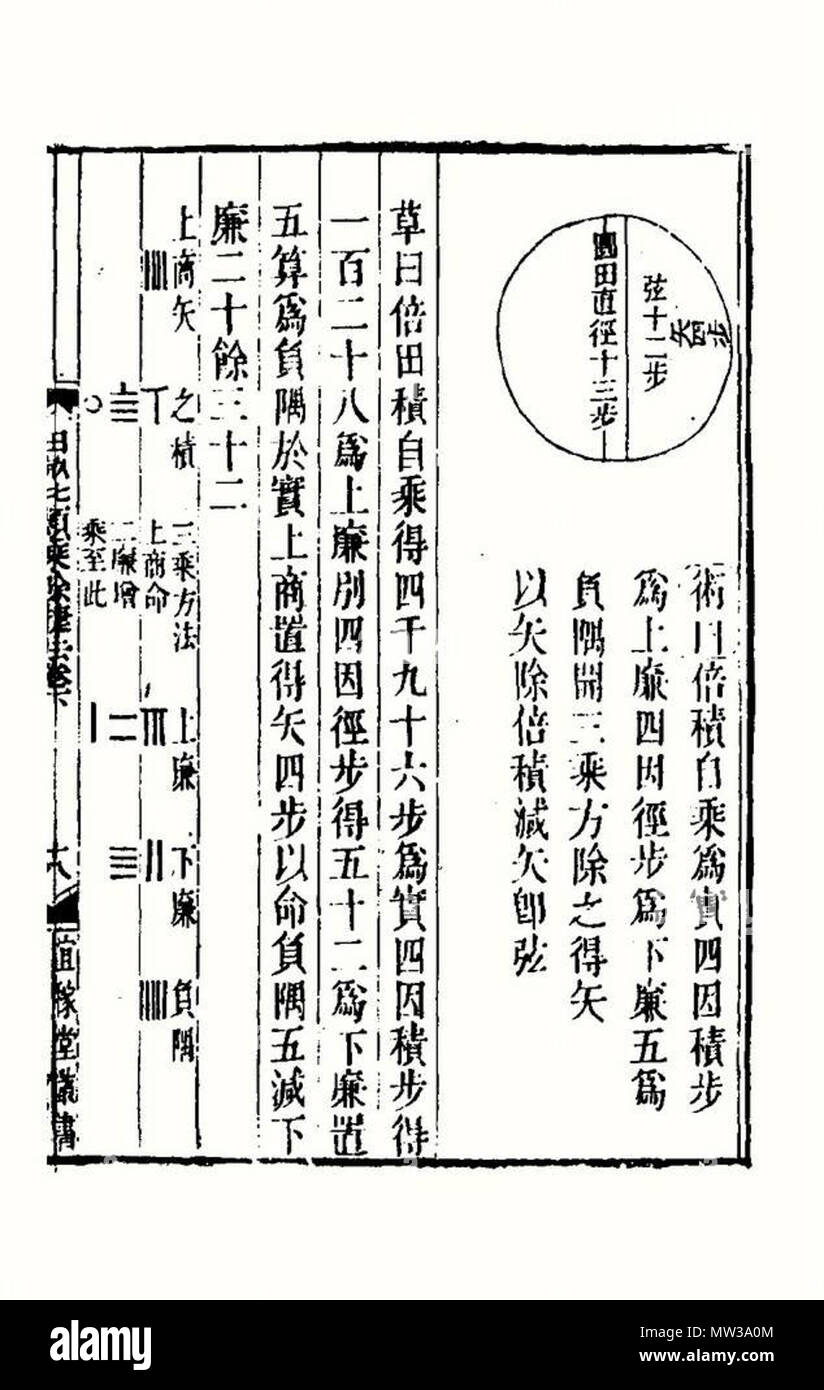 弦十二步
矢四步
圓田直徑十三步
術曰倍積自乘爲實四因積步
爲上廉四因徑步爲下廉五爲
負隅開三乘方除之得矢
以矢除倍積減矢卽弦
草曰倍田積自乘得四千九十六步爲實四因積步得
一百二十八爲上廉別四因徑步得五十二爲下廉置
五算爲負隅於實上商置得矢四步以命負隅五減下
廉二十餘三十二
上商矢 之積 三乘方法 上廉 下廉 負隅
上商命
二廉增
乘至此
田畝七類乘除捷法卷下
十八
宜稼堂叢書
alamy
Image ID: MW3A0M
www.alamy.com